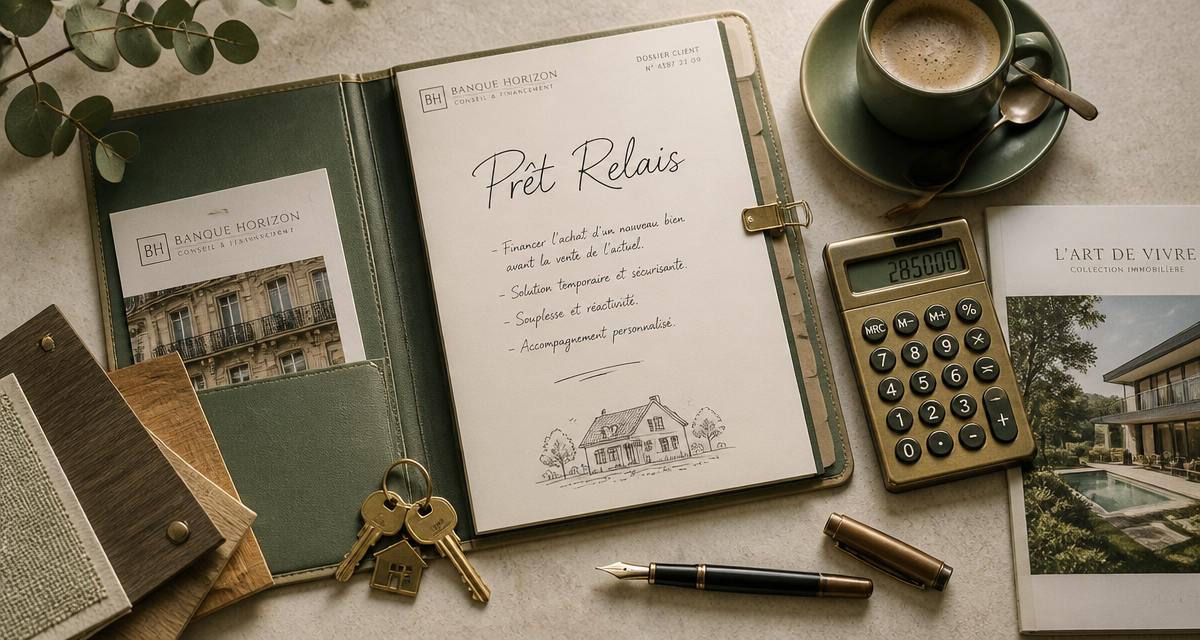 BH BANQUE HORIZON
CONSEIL & FINANCEMENT
DOSSIER CLIENT
N° 4587 21 09
Prêt Relais
- Financer l'achat d'un nouveau bien
avant la vente de l'actuel.
- Solution temporaire et sécurisante.
- Souplesse et réactivité.
- Accompagnement personnalisé.
BH BANQUE HORIZON
CONSEIL & FINANCEMENT
285000
MRC M- M+ %
7 8 9 ×
4 5 6 =
1 2 3 +
0 . -
L'ART DE VIVRE
COLLECTION IMMOBILIÈRE